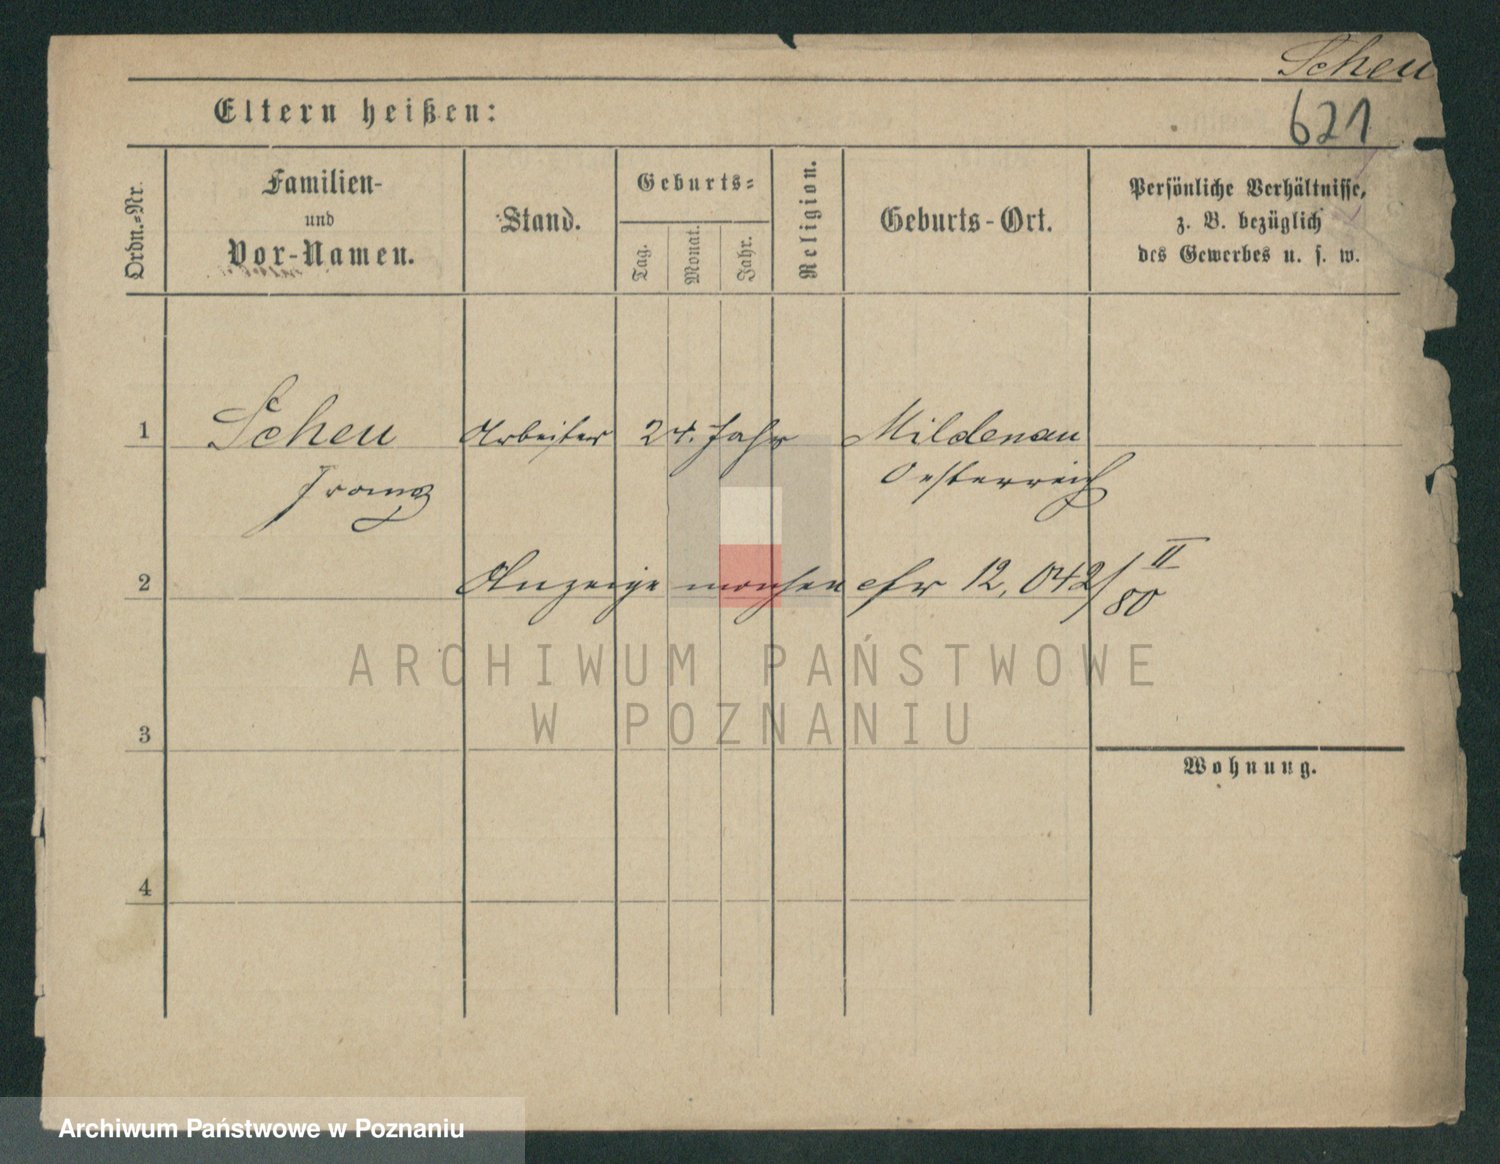 Scheu
621
Eltern heißen:
Ordn.-Nr.
Familien-
und
Vor-Namen.
Stand.
Geburts-
Tag.
Monat.
Jahr.
Religion.
Geburts-Ort.
Persönliche Verhältnisse,
z. B. bezüglich
des Gewerbes u. s. w.
1 Scheu Arbeiter 24. Jahr Mildenau
Franz Oesterreich
2 Anzeige cfr 12,042/II 80
ARCHIWUM PAŃSTWOWE
W POZNANIU
3
Wohnung.
4
Archiwum Państwowe w Poznaniu